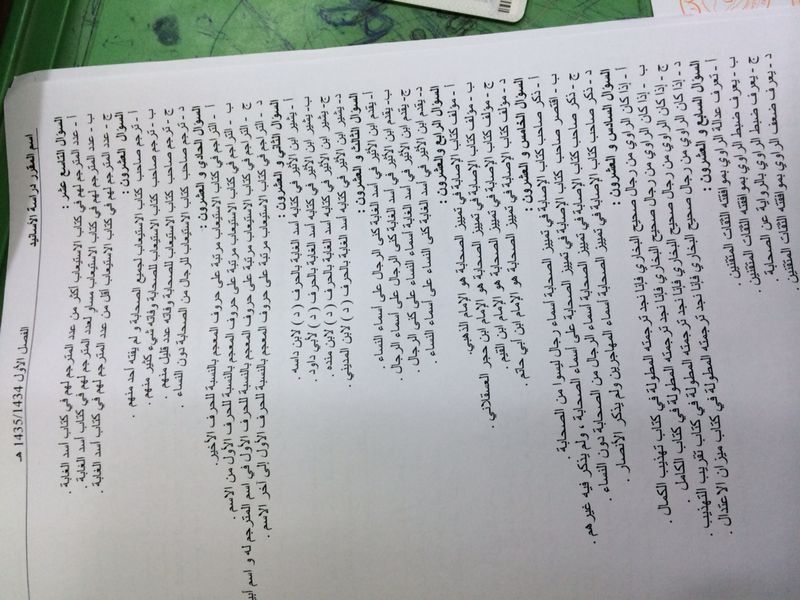 اسم المقرر دراسة الأسانيد
الفصل الأول 1435/1434 هـ
السؤال التاسع عشر :
أ - عدد المترجم لهم في كتاب الاستيعاب أكثر من عدد المترجم لهم في كتاب أسد الغابة .
ب - عدد المترجم لهم في كتاب الاستيعاب مساو لعدد المترجم لهم في كتاب أسد الغابة .
ج - عدد المترجم لهم في كتاب الاستيعاب أقل من عدد المترجم لهم في كتاب أسد الغابة .
السؤال العشرون :
أ - ترجم صاحب كتاب الاستيعاب لجميع الصحابة و لم يفته أحد منهم .
ب - ترجم صاحب كتاب الاستيعاب للصحابة وفاته شيء كثير منهم .
ج - ترجم صاحب كتاب الاستيعاب للصحابة وفاته عدد قليل منهم .
د - ترجم صاحب كتاب الاستيعاب للرجال من الصحابة دون النساء .
السؤال الحادي و العشرون :
أ - التراجم في كتاب الاستيعاب مرتبة على حروف المعجم بالنسبة للحرف الأخير .
ب - التراجم في كتاب الاستيعاب مرتبة على حروف المعجم بالنسبة للحرف الأول من الاسم .
ج - التراجم في كتاب الاستيعاب مرتبة على حروف المعجم بالنسبة للحرف الأول في اسم المترجم له و اسم أبيه
د - التراجم في كتاب الاستيعاب مرتبة على حروف المعجم بالنسبة للحرف الأول إلى آخر الاسم .
السؤال الثاني و العشرون :
أ - يشير ابن الأثير في كتابه أسد الغابة بالحرف ( د ) لابن داسه .
ب - يشير ابن الأثير في كتابه أسد الغابة بالحرف ( د ) لأبي داود .
ج - يشير ابن الأثير في كتابه أسد الغابة بالحرف ( د ) لابن منده .
د - يشير ابن الأثير في كتابه أسد الغابة بالحرف ( د ) لابن المديني .
السؤال الثالث و العشرون :
أ - يقدم ابن الأثير في أسد الغابة كنى الرجال على أسماء النساء .
ب - يقدم ابن الأثير في أسد الغابة كنى الرجال على أسماء الرجال .
ج - يقدم ابن الأثير في أسد الغابة أسماء النساء على كنى الرجال .
د - يقدم ابن الأثير في أسد الغابة كنى النساء على أسماء النساء .
السؤال الرابع و العشرون :
أ - مؤلف كتاب الإصابة في تمييز الصحابة هو الإمام الذهبي .
ب - مؤلف كتاب الإصابة في تمييز الصحابة هو الإمام ابن حجر العسقلاني .
ج - مؤلف كتاب الإصابة في تمييز الصحابة هو الإمام ابن القيم .
د - مؤلف كتاب الإصابة في تمييز الصحابة هو الإمام ابن أبي حاتم .
السؤال الخامس و العشرون :
أ - ذكر صاحب كتاب الإصابة في تمييز الصحابة أسماء رجال ليسوا من الصحابة .
ب - اقتصر صاحب كتاب الإصابة في تمييز الصحابة على أسماء الصحابة ، ولم يذكر فيه غيرهم .
ج - ذكر صاحب كتاب الإصابة في تمييز الصحابة أسماء الرجال من الصحابة دون النساء .
د - ذكر صاحب كتاب الإصابة في تمييز الصحابة أسماء المهاجرين ولم يذكر الأنصار .
السؤال السادس و العشرون :
أ - إذا كان الراوي من رجال صحيح البخاري فإنا نجد ترجمته المطولة في كتاب تهذيب الكمال .
ب - إذا كان الراوي من رجال صحيح البخاري فإنا نجد ترجمته المطولة في كتاب الكامل .
ج - إذا كان الراوي من رجال صحيح البخاري فإنا نجد ترجمته المطولة في كتاب تقريب التهذيب .
د - إذا كان الراوي من رجال صحيح البخاري فإنا نجد ترجمته المطولة في كتاب ميزان الاعتدال .
السؤال السابع و العشرون :
أ - تعرف عدالة الراوي بموافقته الثقات المتقنين .
ب - يعرف ضبط الراوي بموافقته الثقات المتقنين .
ج - يعرف ضبط الراوي بالرواية عن الصحابة .
د - يعرف ضعف الراوي بموافقته الثقات المتقنين .